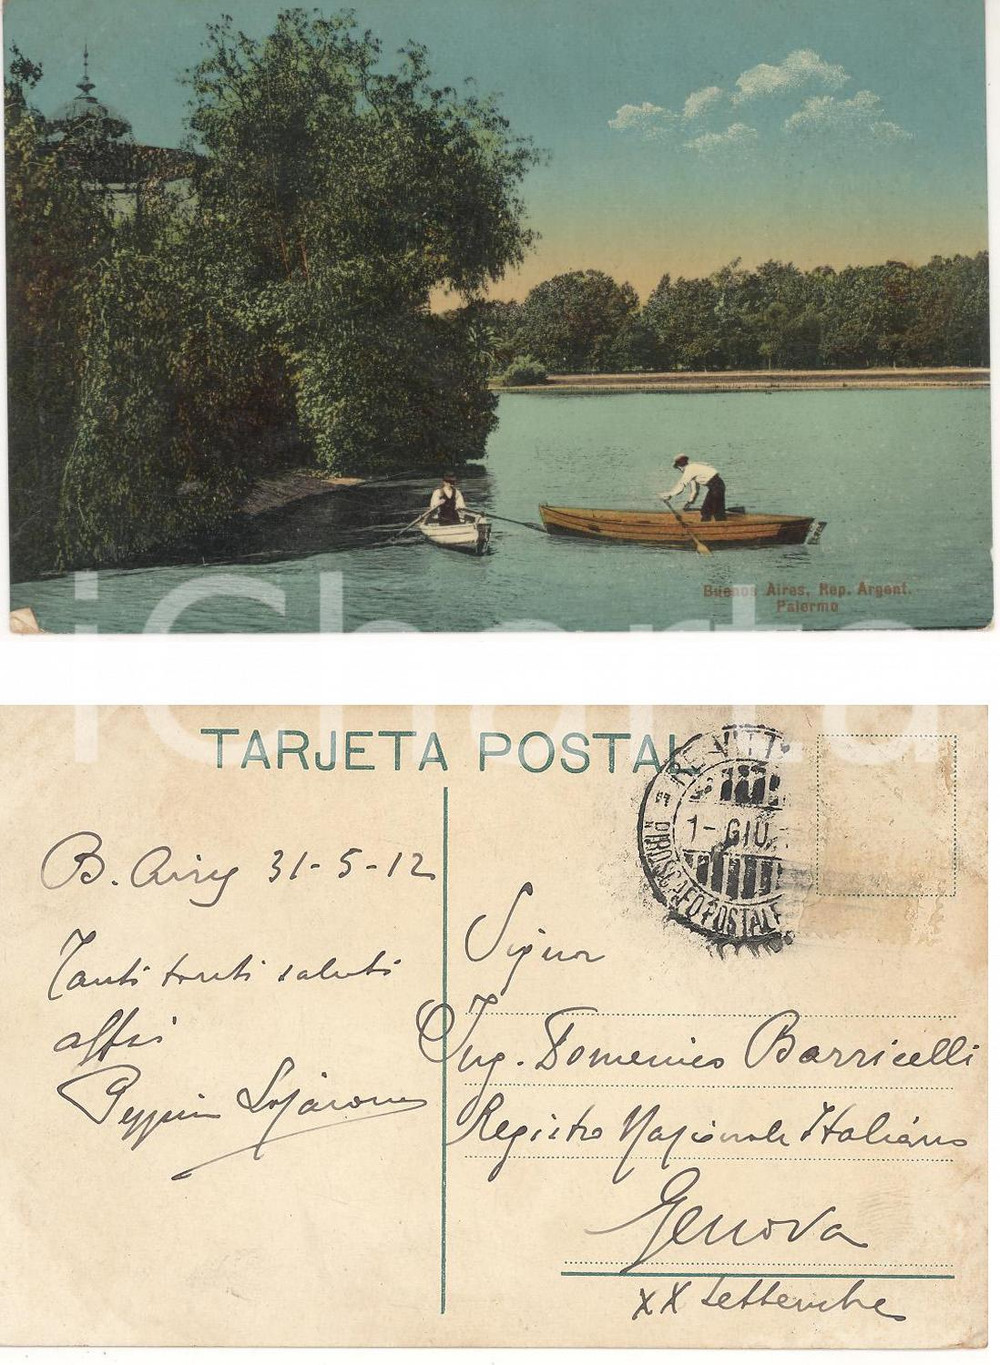 Buenos Aires, Rep. Argent.
Palermo
iCharta
TARJETA POSTAL
PIROSCAFO POSTALE
1 - GIU.
B. Aires 31-5-12
Tanti tanti saluti
affzi
Peppin
Signor
Ing. Domenico Barricelli
Registro Nazionale Italiano
Genova
XX Settembre